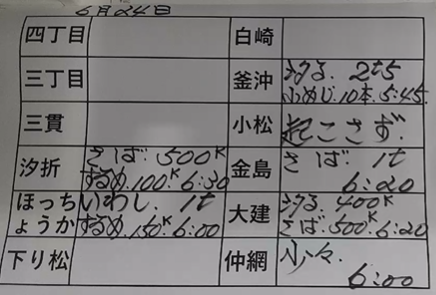 6月24日
四丁目 白崎
三丁目 釜沖 夕る. 2t5
小めじ.10本.5:45.
三貫 小松 起こさず.
汐折 さば. 500K 金島 さば. 1t
するめ.100K.6:30 6:20
ほっち いわし. 1t 大建 夕る. 400K
ょうか するめ.150K.6:00 さば.500K.6:20
下り松 仲網 少々.
6:00